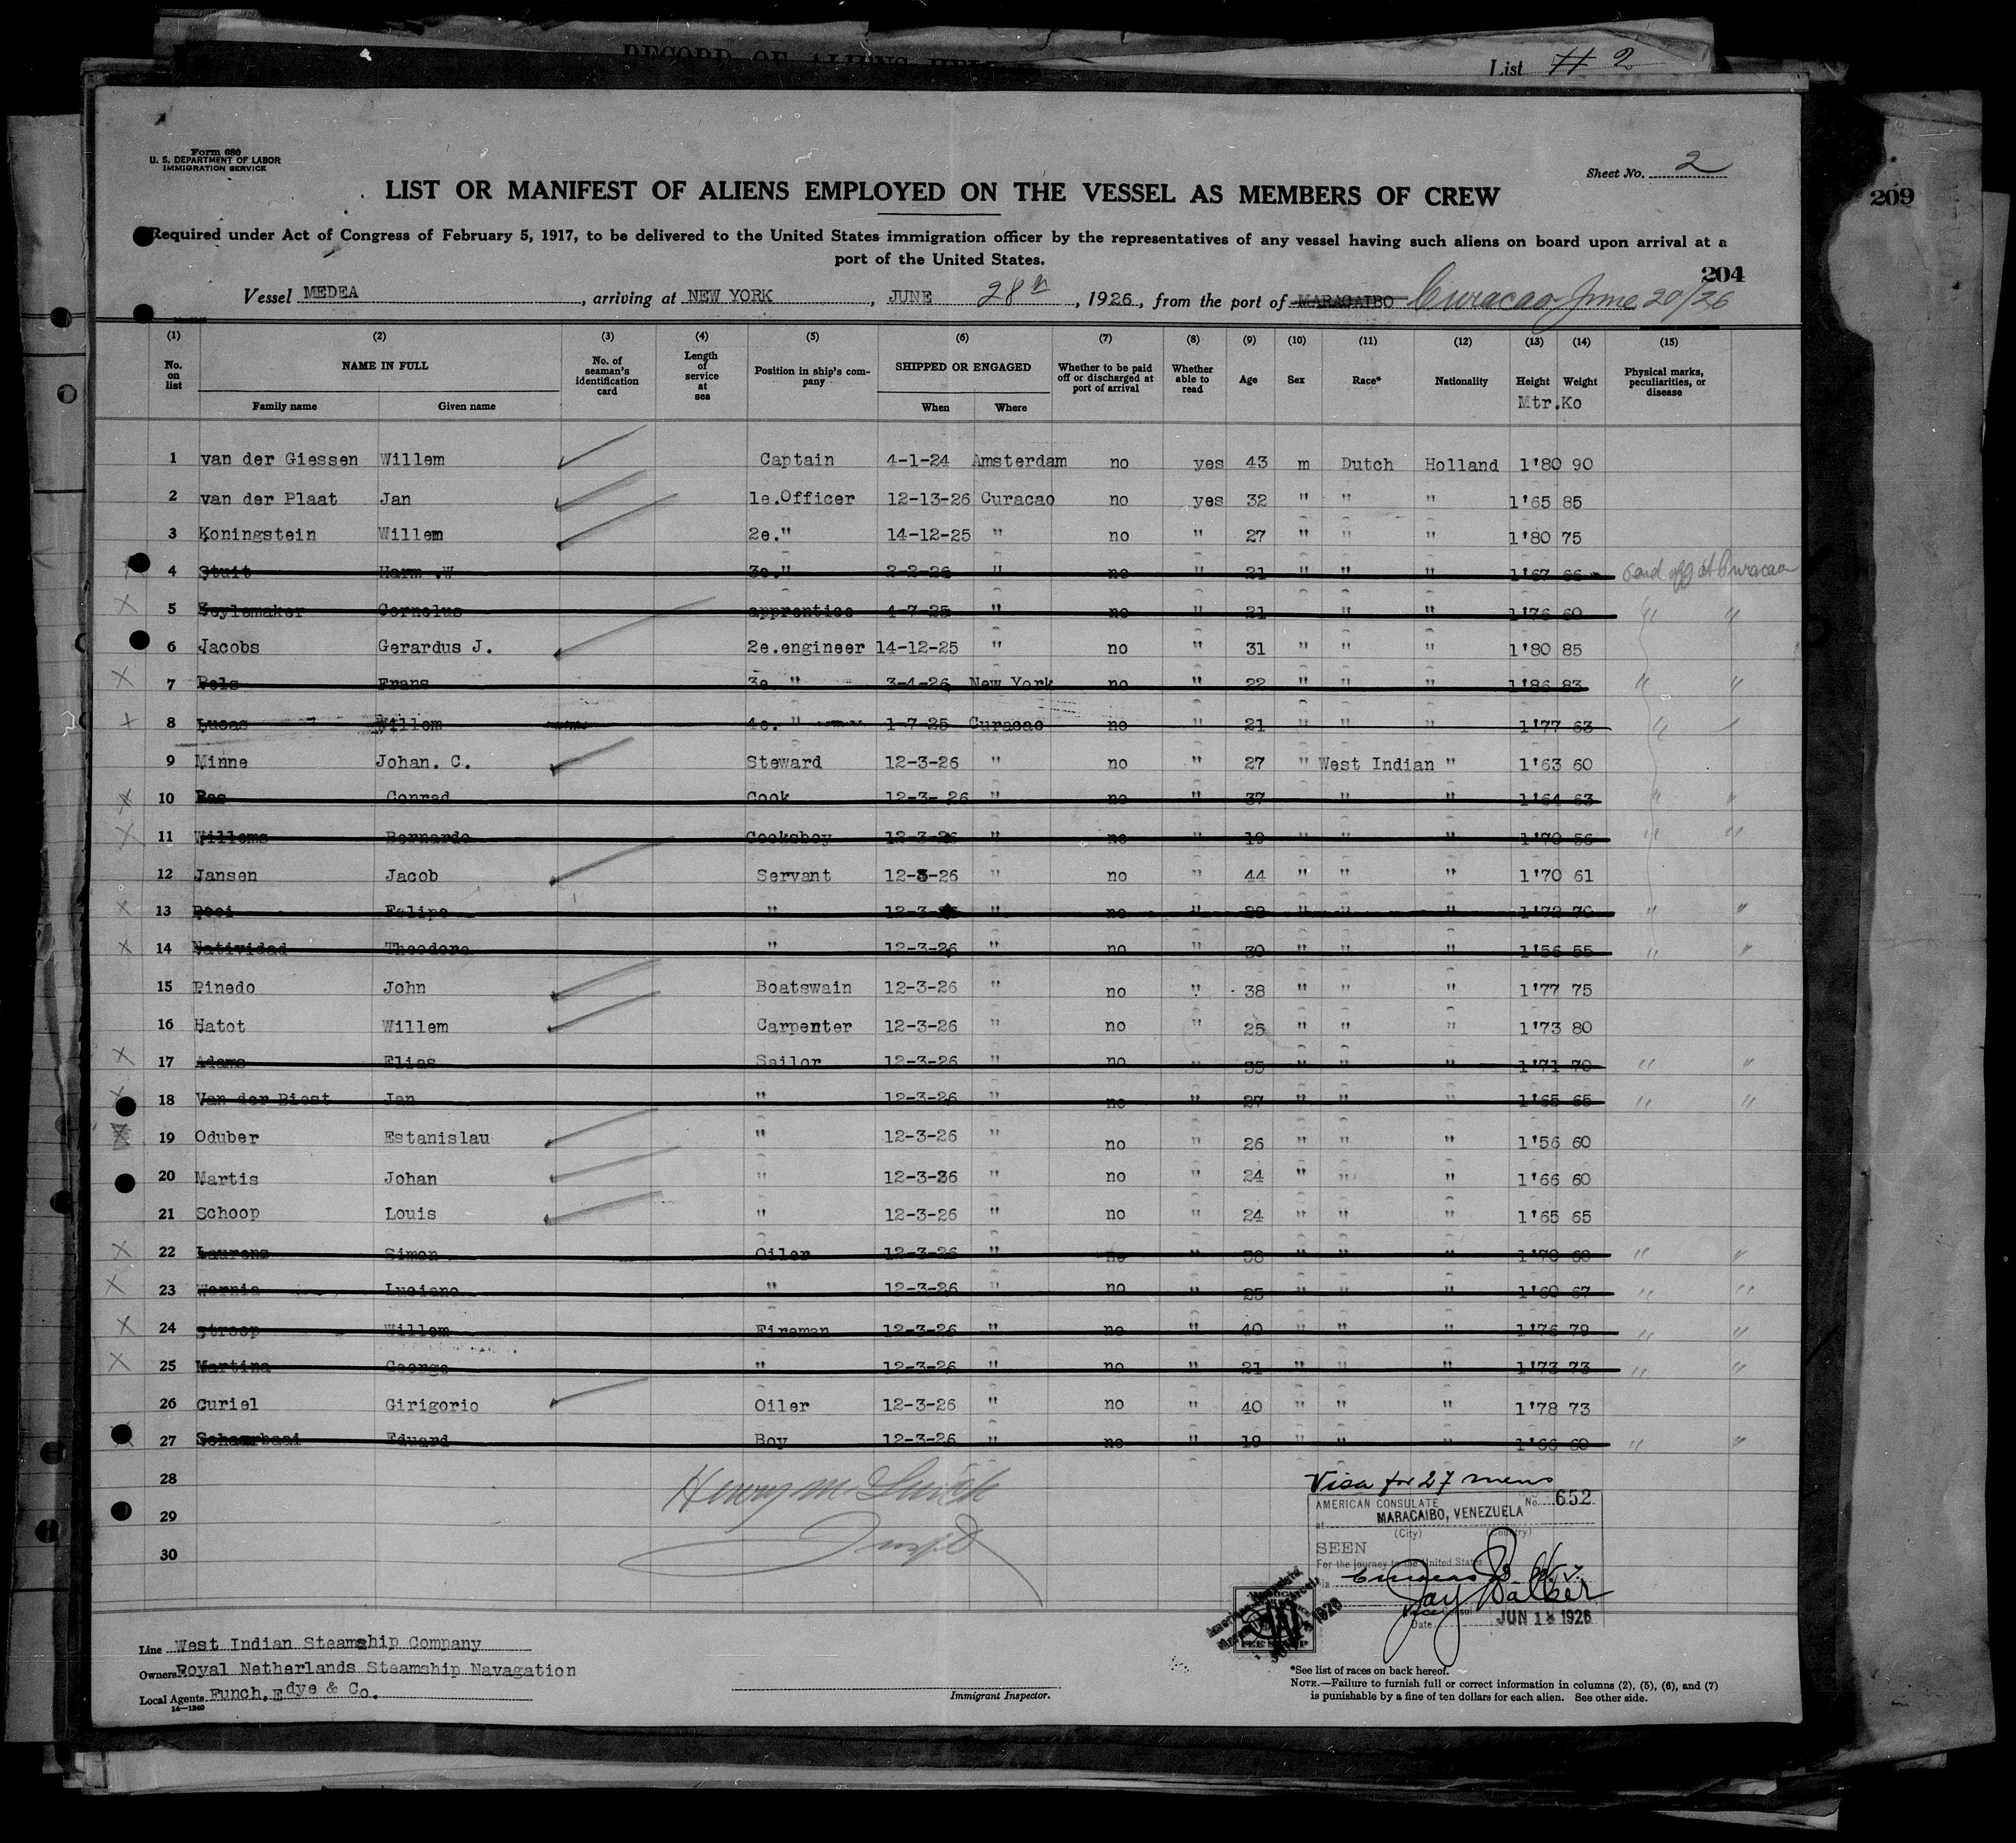 RECORD OF ALIENS HELD
List # 2
Form 680
U. S. DEPARTMENT OF LABOR
IMMIGRATION SERVICE
Sheet No. 2
LIST OR MANIFEST OF ALIENS EMPLOYED ON THE VESSEL AS MEMBERS OF CREW
209
Required under Act of Congress of February 5, 1917, to be delivered to the United States immigration officer by the representatives of any vessel having such aliens on board upon arrival at a
port of the United States.
204
Vessel MEDEA, arriving at NEW YORK, JUNE 28th, 1926, from the port of MARACAIBO Curacao June 20/26
(1) (2) (3) (4) (5) (6) (7) (8) (9) (10) (11) (12) (13) (14) (15)
No. on list NAME IN FULL Family name Given name No. of seaman's identification card Length of service at sea Position in ship's company SHIPPED OR ENGAGED When Where Whether to be paid off or discharged at port of arrival Whether able to read Age Sex Race* Nationality Height Weight Physical marks, peculiarities, or disease
Mtr. Ko
1 van der Giessen Willem Captain 4-1-24 Amsterdam no yes 43 m Dutch Holland 1'80 90
2 van der Plaat Jan 1e.Officer 12-13-26 Curacao no yes 32 " " " 1'65 85
3 Koningstein Willem 2e." 14-12-25 " no " 27 " " " 1'80 75
4 Stuit Harm .W 3e." 2-2-26 " no " 21 " " " 1'67 66 Paid off at Curacao
5 Zeylemaker Cornelus apprentice 4-7-25 " no " 21 " " 1'76 60 " "
6 Jacobs Gerardus J. 2e.engineer 14-12-25 " no " 31 " " " 1'80 85
7 Pels Frans 3e. " 3-4-26 New York no " 22 " " " 1'86 83 " "
8 Lucas Willem 4e. " 1-7-25 Curacao no " 21 " " " 1'77 63 " "
9 Minne Johan. C. Steward 12-3-26 " no " 27 " West Indian " 1'63 60
10 Bas Conrad Cook 12-3-26 " no " 37 " " " 1'64 63 " "
11 Willems Bernardo Cooksboy 12-3-26 " no " 19 " " " 1'70 56 " "
12 Jansen Jacob Servant 12-3-26 " no " 44 " " " 1'70 61
13 Felipe " 12-3-26 " no " " " " 1'72 70 " "
14 Natividad Theodoro " 12-3-26 " no " 30 " " " 1'56 55 " "
15 Pinedo John Boatswain 12-3-26 " no " 38 " " " 1'77 75
16 Hatot Willem Carpenter 12-3-26 " no " 25 " " " 1'73 80
17 Adams Elias Sailor 12-3-26 " no " 35 " " " 1'71 70 " "
18 Van der Biest Jan " 12-3-26 " no " 27 " " " 1'65 65 " "
19 Oduber Estanislau " 12-3-26 " no " 26 " " " 1'56 60
20 Martis Johan " 12-3-26 " no " 24 " " " 1'66 60
21 Schoop Louis " 12-3-26 " no " 24 " " " 1'65 65
22 Laurens Simon Oiler 12-3-26 " no " 38 " " " 1'70 60 " "
23 Wernia Luciano " 12-3-26 " no " 25 " " " 1'60 67 " "
24 Stroop Willem Fireman 12-3-26 " no " 40 " " " 1'76 79 " "
25 Martina George " 12-3-26 " no " 21 " " " 1'73 73 " "
26 Curiel Girigorio Oiler 12-3-26 " no " 40 " " " 1'78 73
27 Eduard Boy 12-3-26 " no " 19 " " " 1'66 60 " "
28
29
30
Visa for 27 mens
AMERICAN CONSULATE No. 652
at MARACAIBO, VENEZUELA
(City) (Country)
SEEN
For the journey to the United States
via Curacao
Jay Walker
Vice Consul
Date JUN 18 1926
Line West Indian Steamship Company
Owners Royal Netherlands Steamship Navagation
Local Agents Funch, Edye & Co.
14—1240
Immigrant Inspector.
*See list of races on back hereof.
NOTE.—Failure to furnish full or correct information in columns (2), (5), (6), and (7)
is punishable by a fine of ten dollars for each alien. See other side.